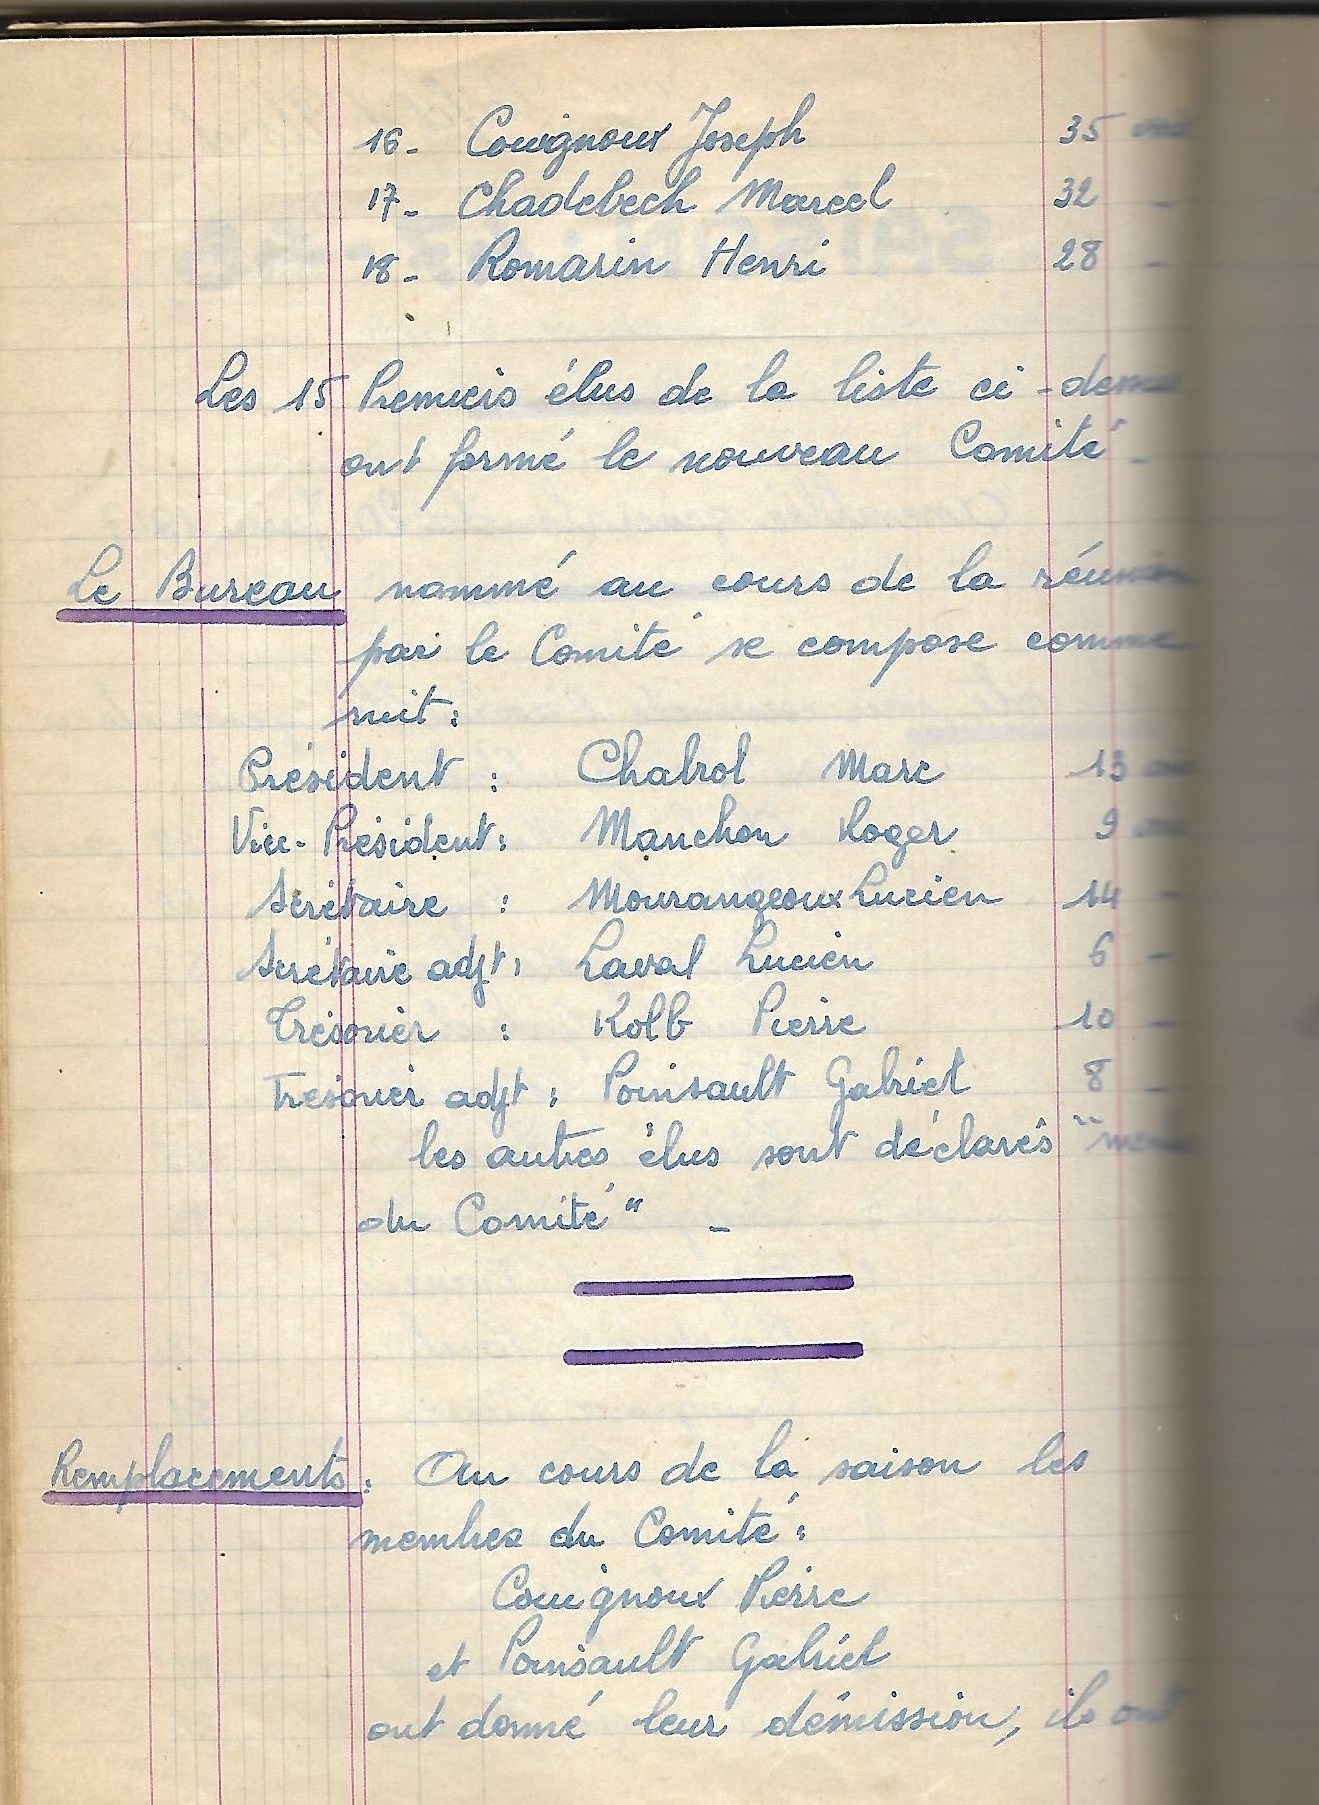 16- Couignoux Joseph 35 voix
17- Chadebech Marcel 32 -
18- Romarin Henri 28 -
Les 15 Premiers élus de la liste ci-dessus
ont formé le nouveau Comité -
Le Bureau nommé au cours de la réunion
par le Comité se compose comme
suit :
Président : Chabrol Marc 13 voix
Vice-Président : Manchon Roger 9 voix
Secrétaire : Mourangeoux Lucien 14 -
Secrétaire adjt : Laval Lucien 6 -
Trésorier : Kolb Pierre 10 -
Trésorier adjt : Poinsault Gabriel 8 -
les autres élus sont déclarés "
du Comité" -
Remplacements : Au cours de la saison les
membres du Comité :
Couignoux Pierre
et Poinsault Gabriel
ont donné leur démission, ils ont